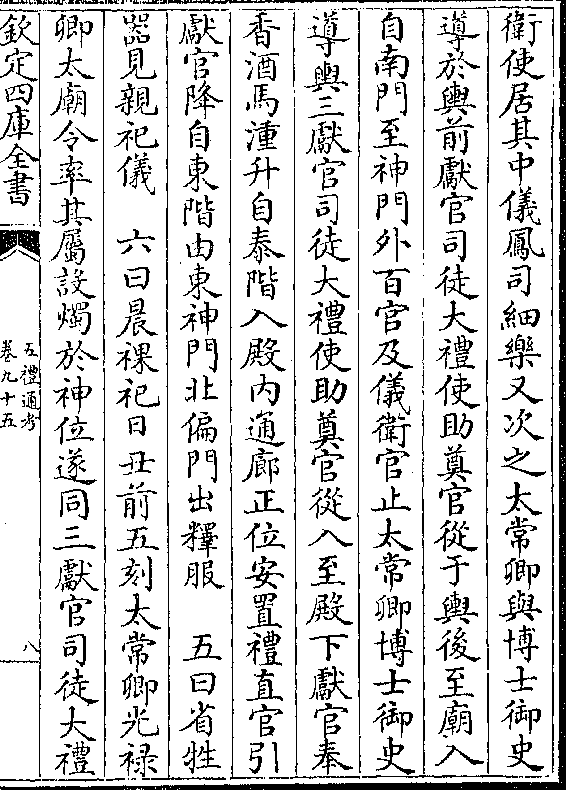 衛使居其中儀鳳司細樂又次之太常卿與博士御史
導於輿前獻官司徒大禮使助奠官從于輿後至廟入
自南門至神門外百官及儀衛官止太常卿博士御史
導輿三獻官司徒大禮使助奠官從入至殿下獻官奉
香酒馬湩升自泰階入殿内通廊正位安置禮直官引
獻官降自東階由東神門北偏門出釋服　五曰省牲
器見親祀儀　六曰晨祼祀日丑前五刻太常卿光禄
卿太廟令率其屬設燭於神位遂同三獻官司徒大禮
欽定四庫全書
五禮通考
卷九十五
八